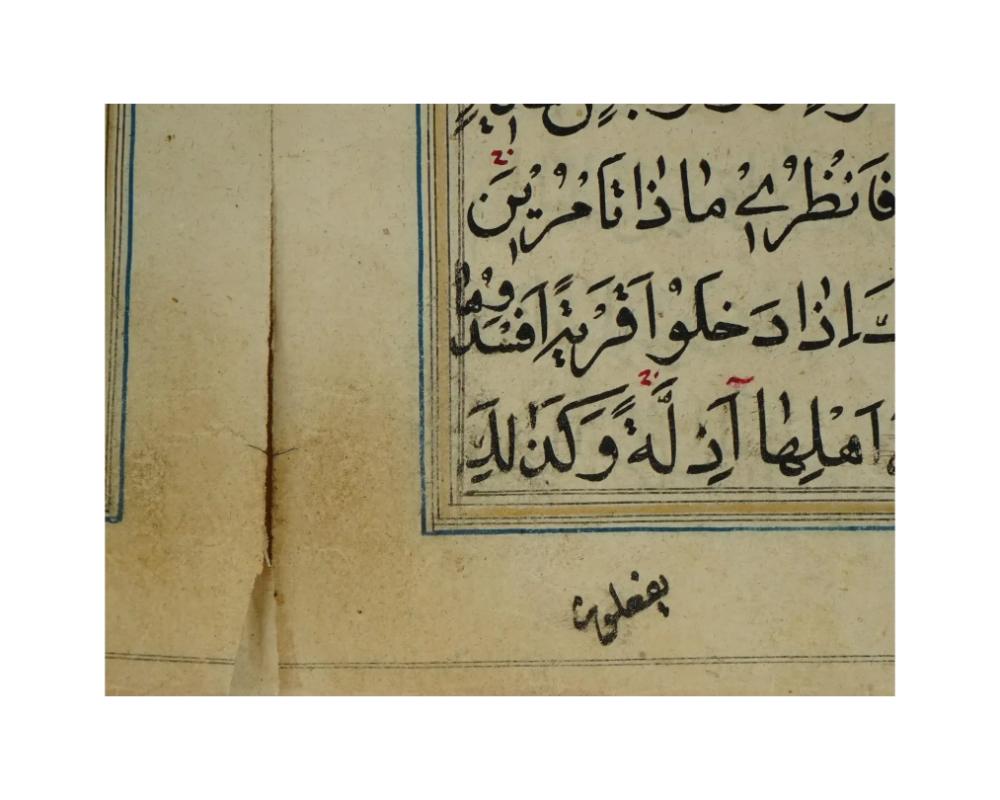 فَانْظُرِي مَاذَا تَأْمُرِينَ
اِذَا دَخَلُوا قَرْيَةً اَفْسَدُوهَا
اَهْلِهَا اَذِلَّةً وَكَذٰلِكَ
يفعلون